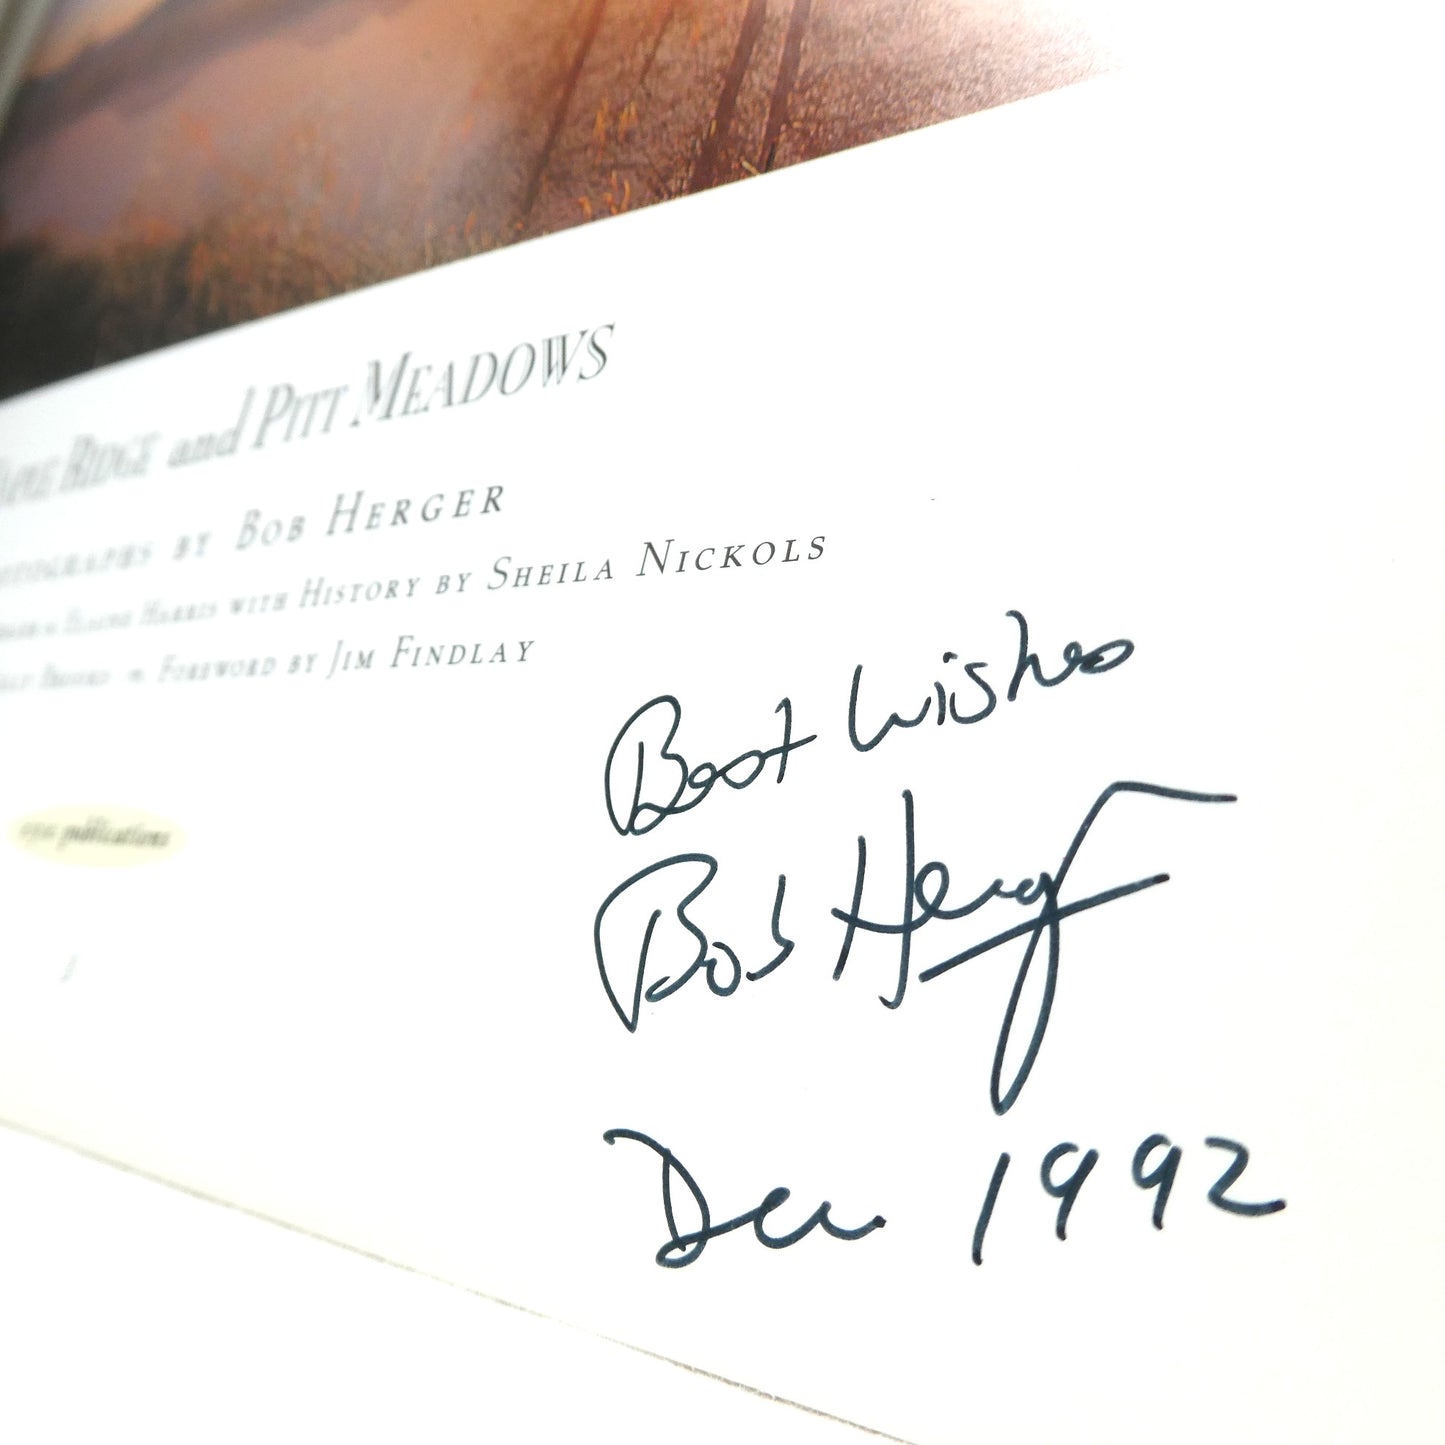 RIDGE and PITT MEADOWS
BY BOB HERGER
HARRIS WITH HISTORY BY SHEILA NICKOLS
FOREWORD BY JIM FINDLAY
publications
Best Wishes
Bob Herger
Dec 1992